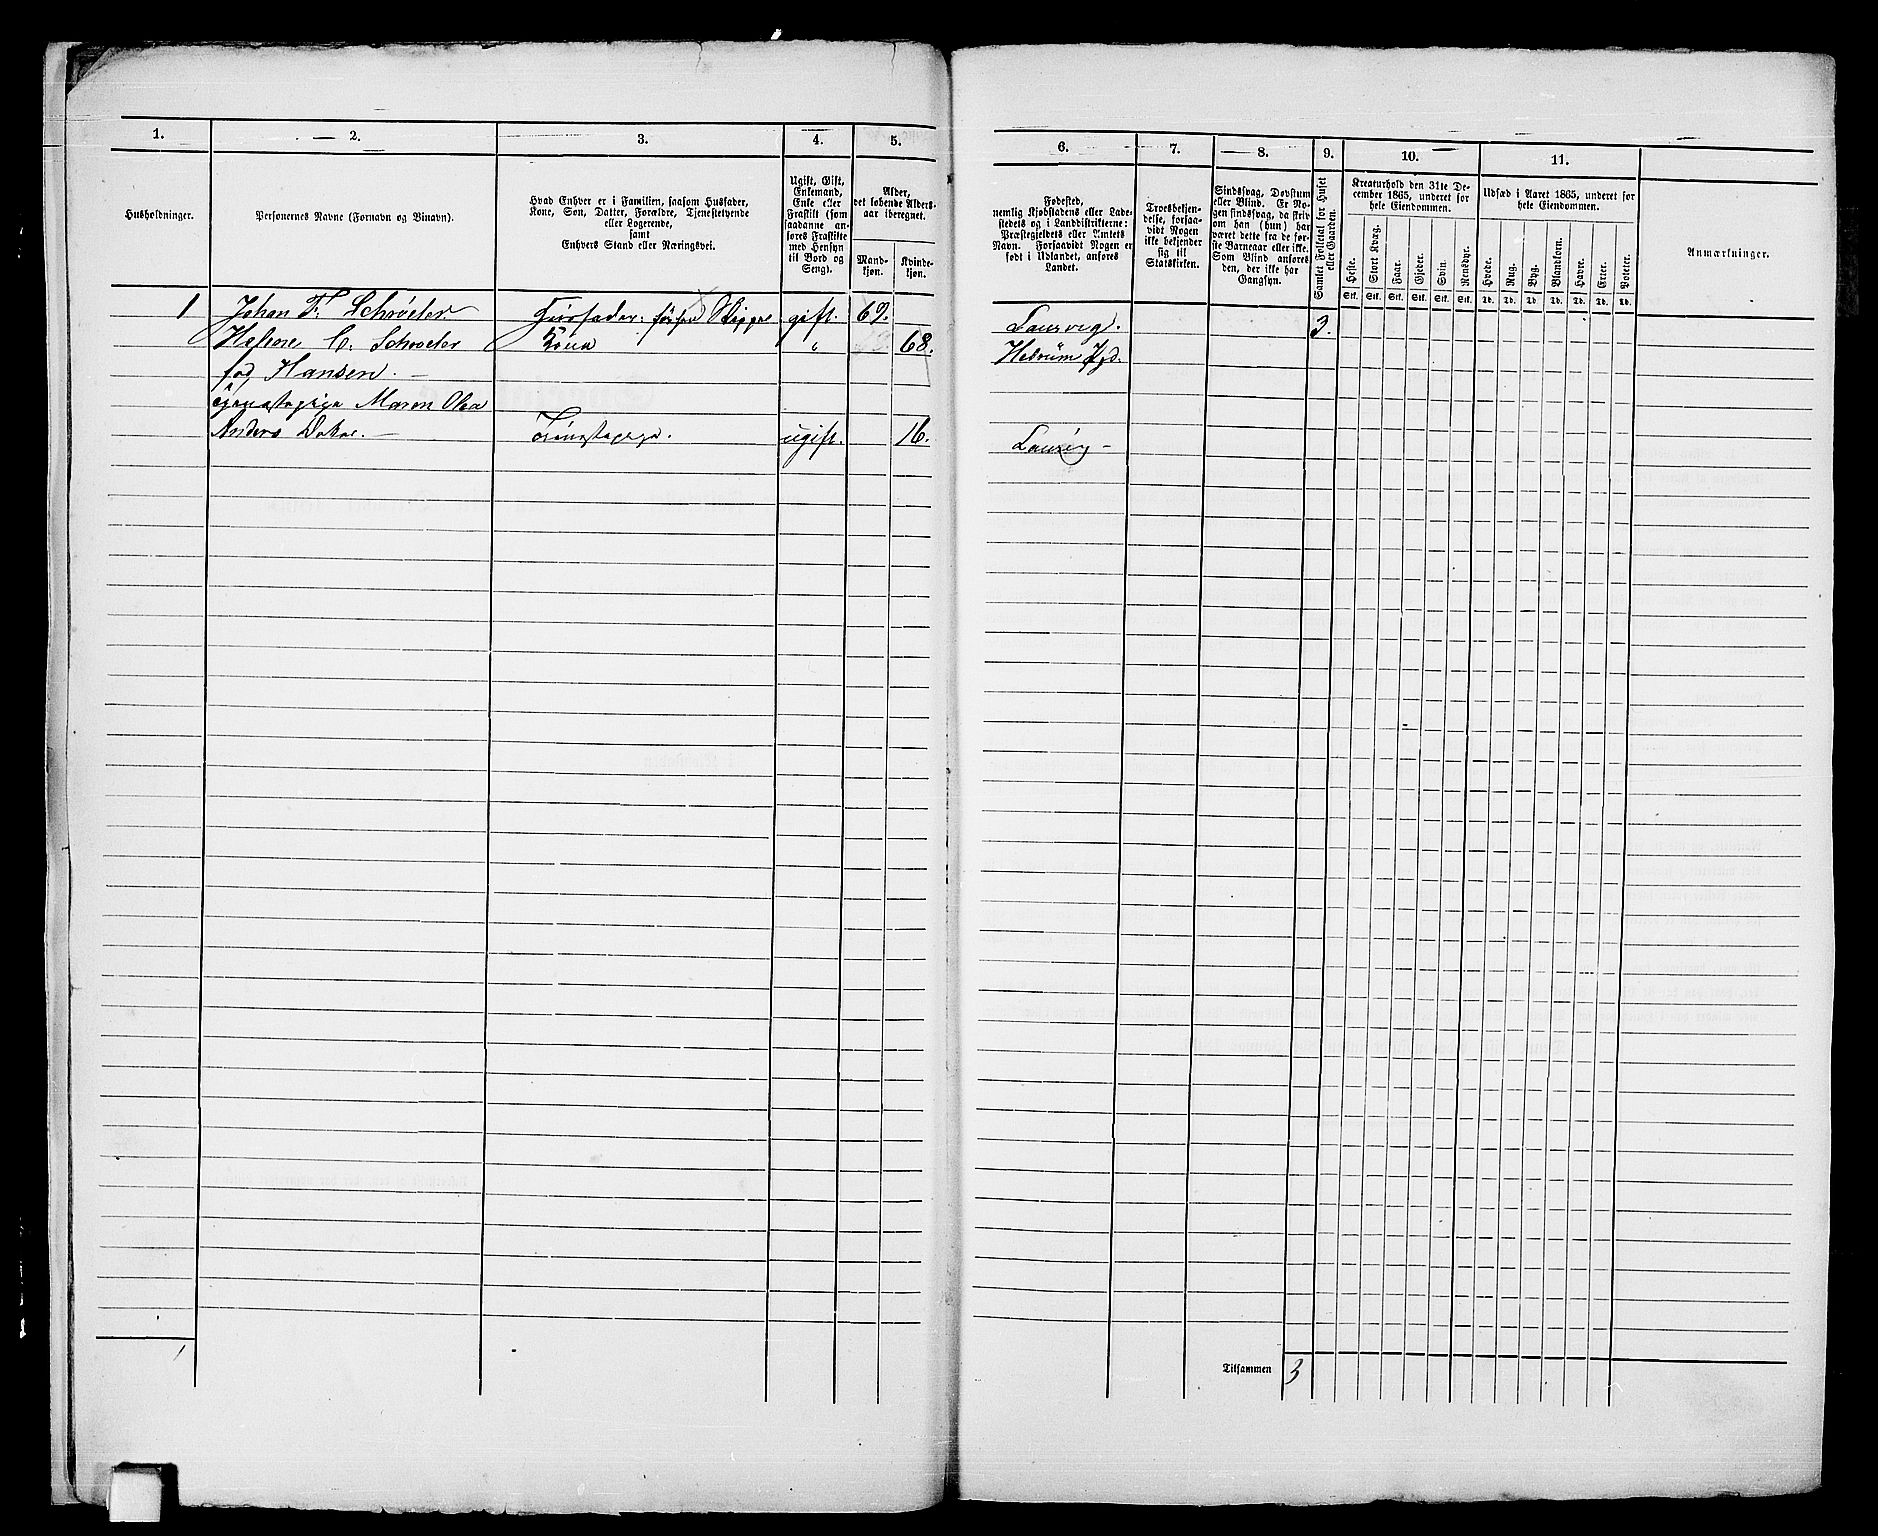 1. 2. 3. 4. 5.
Husholdninger.
Personernes Navne (Fornavn og Binavn).
Hvad Enhver er i Familien, saasom Husfader,
Kone, Søn, Datter, Forældre, Tjenestetyende
eller Logerende,
samt
Enhvers Stand eller Næringsvei.
Ugift, Gift,
Enkemand,
Enke eller
Fraskilt (som
saadanne an-
føres Fraskilte
med Hensyn
til Bord og
Seng).
Alder,
det løbende Alders-
aar iberegnet.
Mand-
kjøn.
Kvinde-
kjøn.
1 Johan F. Schrøeter Huusfader: Skipper gift. 69.
C. Schroeter Kone " 68.
fød Hansen. —
Maren Olea
Anders Datter. — Tjenestepige. ugift. 16.
6. 7. 8. 9. 10. 11.
Fødested,
nemlig Kjøbstadens eller Lade-
stedets og i Landdistrikterne:
Præstegjeldets eller Amtets
Navn. Forsaavidt Nogen er
født i Udlandet, anføres
Landet.
Troesbekjen-
delse, forsaa-
vidt Nogen
ikke bekjender
sig til
Statskirken.
Sindssvag, Døvstum
eller Blind. Er No-
gen sindssvag, da skriv
om han (hun) har
været dette fra de før-
ste Barneaar eller ikke.
Som Blind anføres
den, der ikke har
Gangsyn.
Samlet Folketal for Huset
eller Gaarden.
Kreaturhold den 31te De-
cember 1865, underet for
hele Eiendommen.
Heste. Stort Kvæg. Faar. Gjeder. Svin. Rensdyr.
Stk. Stk. Stk. Stk. Stk. Stk.
Udsæd i Aaret 1865, underet for
hele Eiendommen.
Hvede. Rug. Byg. Blandkorn. Havre. Erter. Poteter.
Td. Td. Td. Td. Td. Td. Td.
Anmærkninger.
Laurvig. 3.
Hedrum Pgd.
Laurvig —
Tilsammen 3